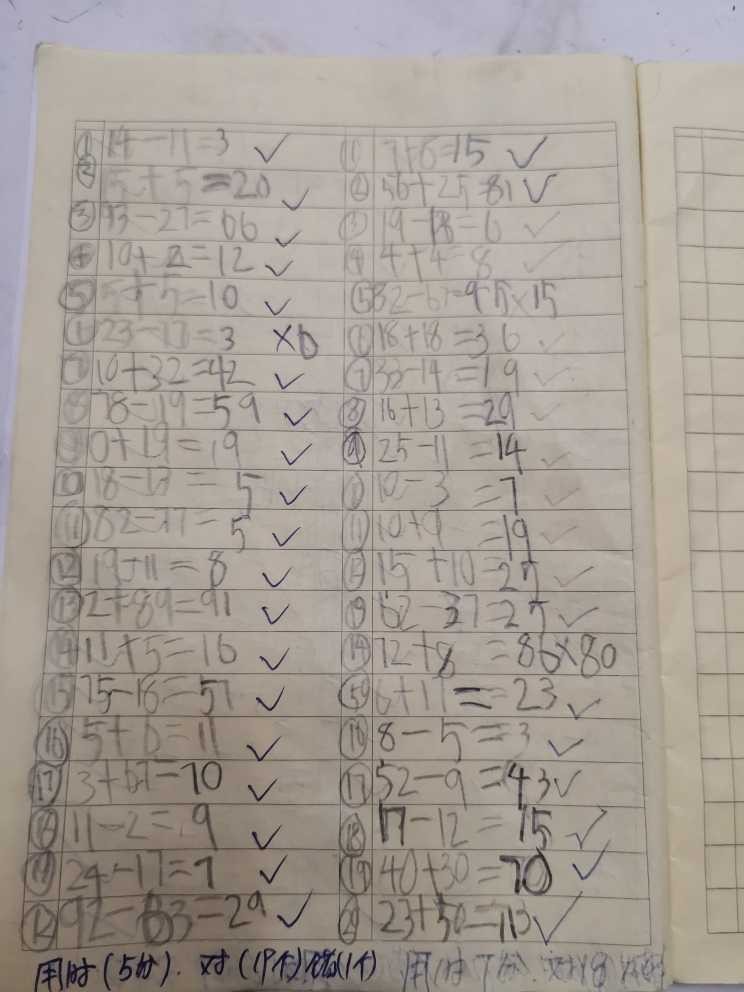 ① 14-11=3 ✓
② 15+5=20 ✓
③ 93-27=66 ✓
④ 10+2=12 ✓
⑤ 5+5=10 ✓
23-17=3 ×6
10+32=42 ✓
78-19=59 ✓
0+19=19 ✓
⑩ 18-13=5 ✓
⑪ 82-77=5 ✓
⑫ 19-11=8 ✓
⑬ 2+89=91 ✓
⑭ 11+5=16 ✓
⑮ 75-18=57 ✓
⑯ 5+6=11 ✓
⑰ 3+67=70 ✓
⑱ 11-2=9 ✓
⑲ 24-17=7 ✓
92-63=29 ✓
用时(5分).对(19个)错(1个)
=15 ✓
② 56+25=81 ✓
19-13=6 ✓
④ 4+4=8 ✓
⑤ 82-67= ×15
⑥ 18+18=36 ✓
⑦ 33-14=19 ✓
⑧ 16+13=29 ✓
⑨ 25-11=14 ✓
10-3=7 ✓
⑪ 10+9=19 ✓
⑫ 15+10=25 ✓
62-37=25 ✓
⑭ 72+8=86×80
⑮ 6+17=23 ✓
⑯ 8-5=3 ✓
⑰ 52-9=43 ✓
⑱ -12=15 ✓
⑲ 40+30=70 ✓
⑳ 23+ = ✓
用时7分.对18